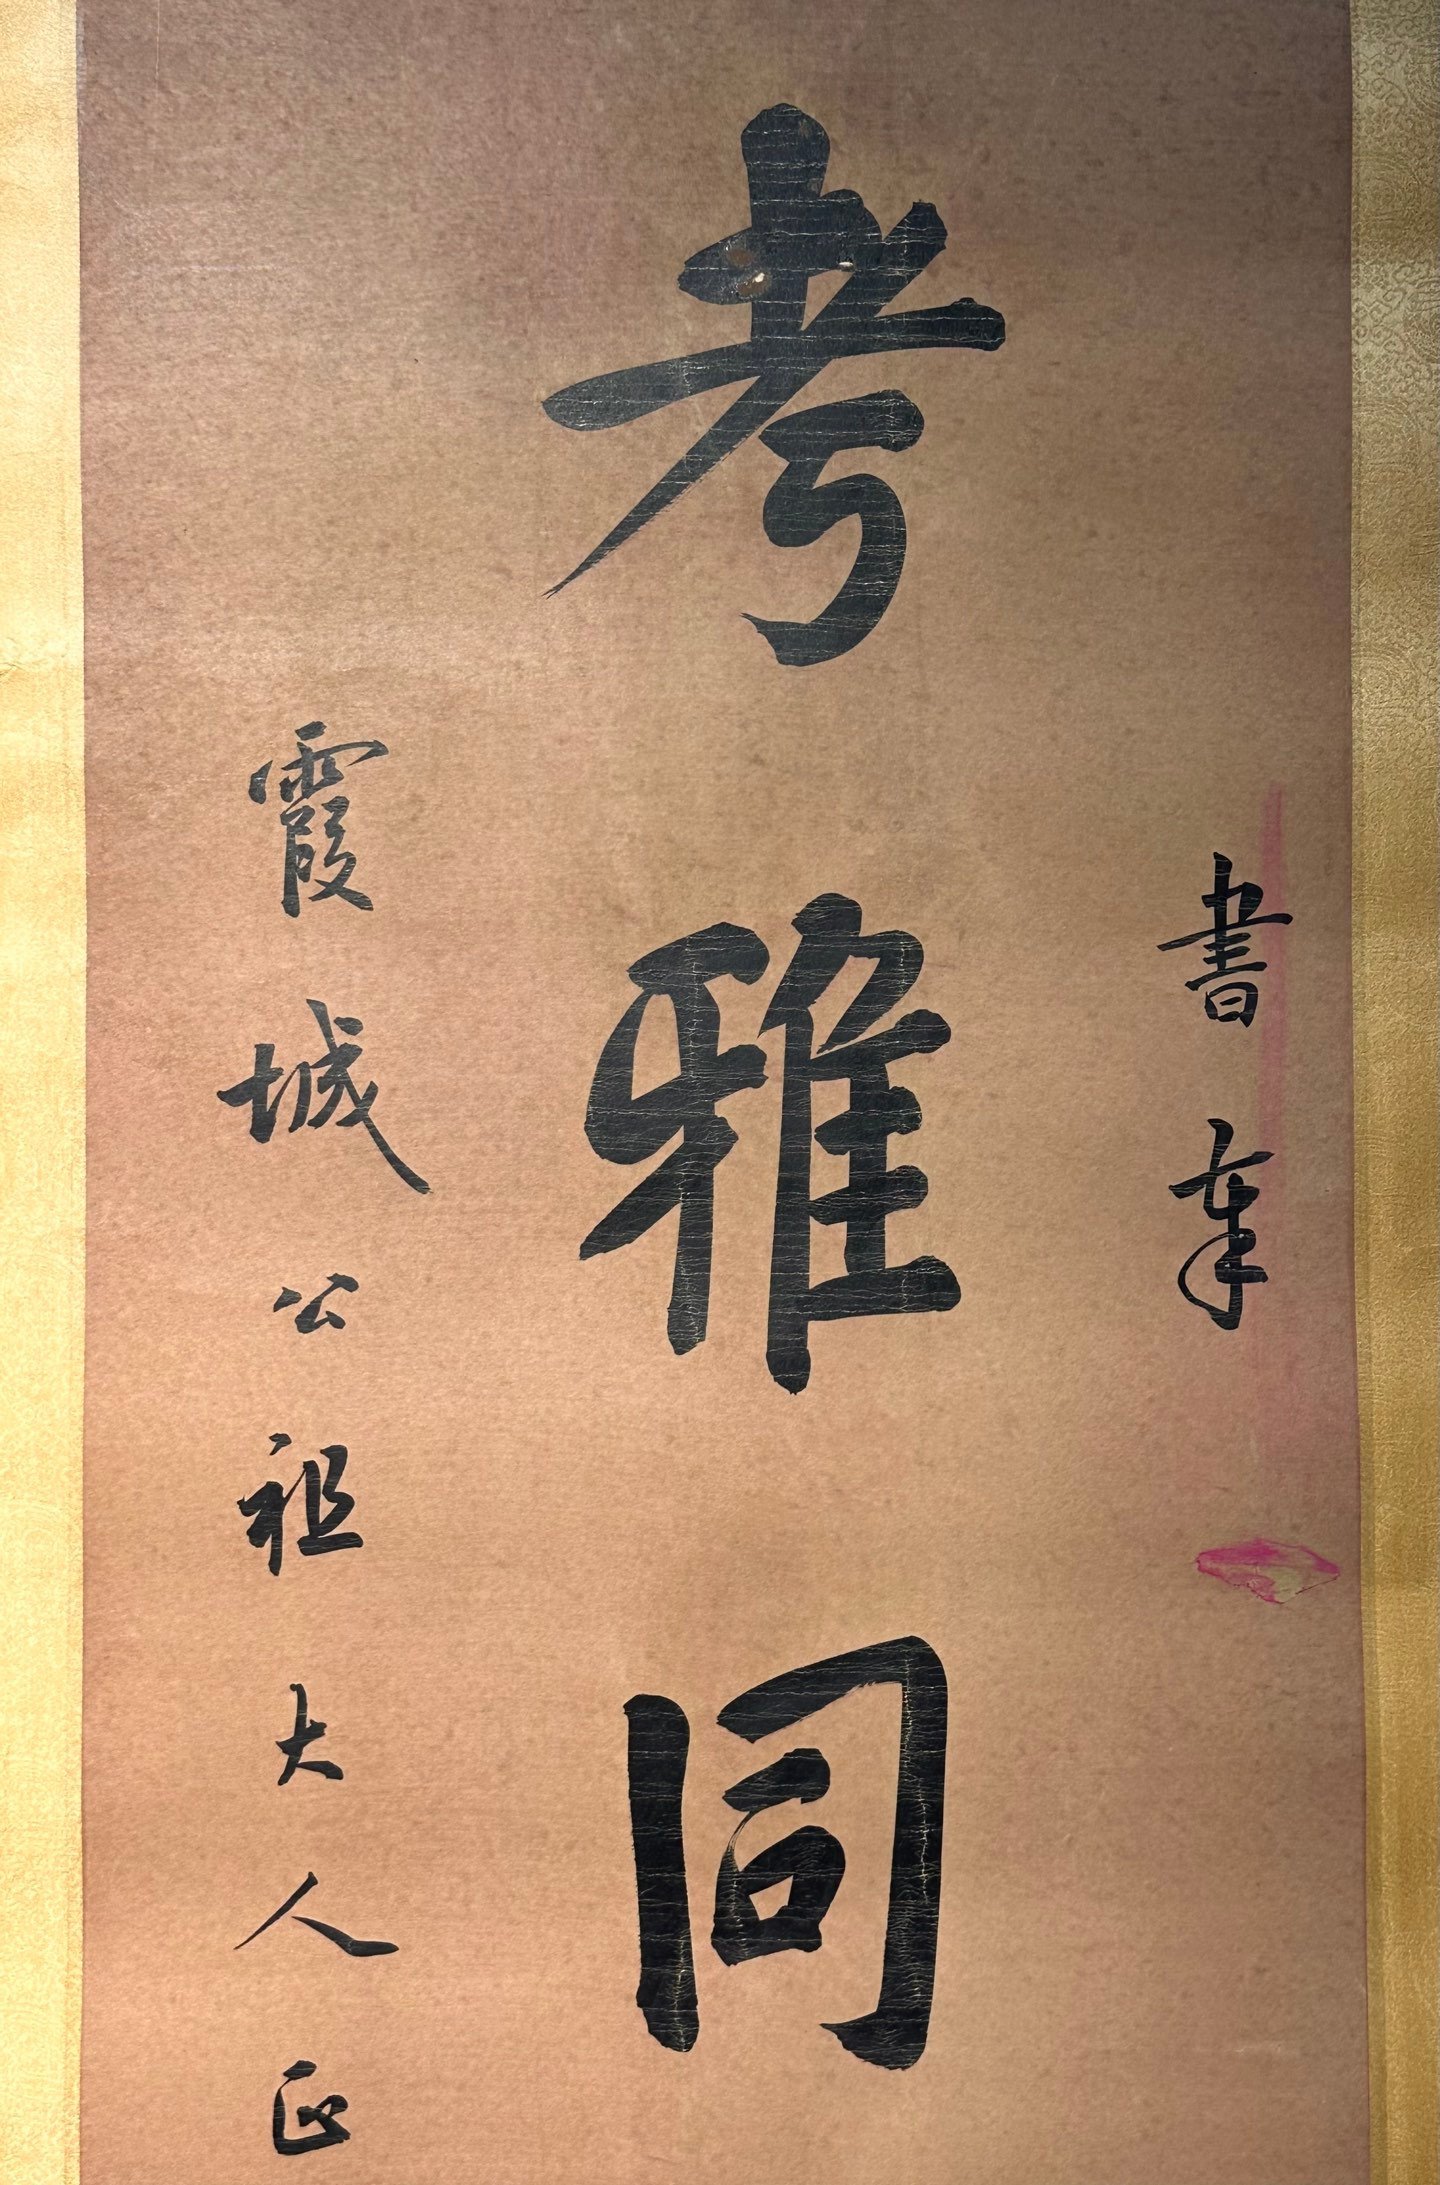 書奉
考雅同
霞城公祖大人正